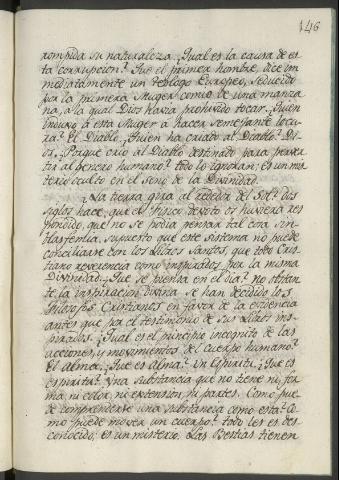 146
rompida su naturaleza. ¿Qual es la causa de es
ta corrupcion? Fue el primer hombre, dice in
mediatamente un Teologo Europeo, seducido
por la primera Muger comió de una manza
na, a la qual Dios havia prohivido tocar. ¿Quien
induxo á esta Muger a hacer semejante locu
ra? El Diablo. ¿Quien ha criado al Diablo? Di
os. ¿Porque crió al Diablo destinado para perver
tir al genero humano? todo lo ignoran; es un mis
terio oculto en el seno de la Divinidad.
¿La tierra gira al rededor del Sol? Dos
siglos hace, que el Fisico devoto os huviera res
pondido, que no se podia pensar tal cosa sin
blasfemia, supuesto que este sistema no puede
conciliarse con los Libros Santos, que todo Cris
tiano reverencia como inspirados por la misma
Divinidad. ¿Que se piensa en el dia? No obstan
te la inspiracion divina se han decidido los
Filosofos Cristianos en favor de la evidencia
antes que por el testimonio de sus Libros ins
pirados. ¿Qual es el principio incognito de las
acciones, y movimientos del cuerpo humano?
El Alma. ¿Que es Alma? Un Espiritu. ¿Que es
espiritu? Una substancia que no tiene ni for
ma, ni color, ni extension, ni partes. Como pue
de comprenderse una substancia como esta? Co
mo puede mover un cuerpo? todo les es des
conocido; es un misterio. Las Bestias tienen